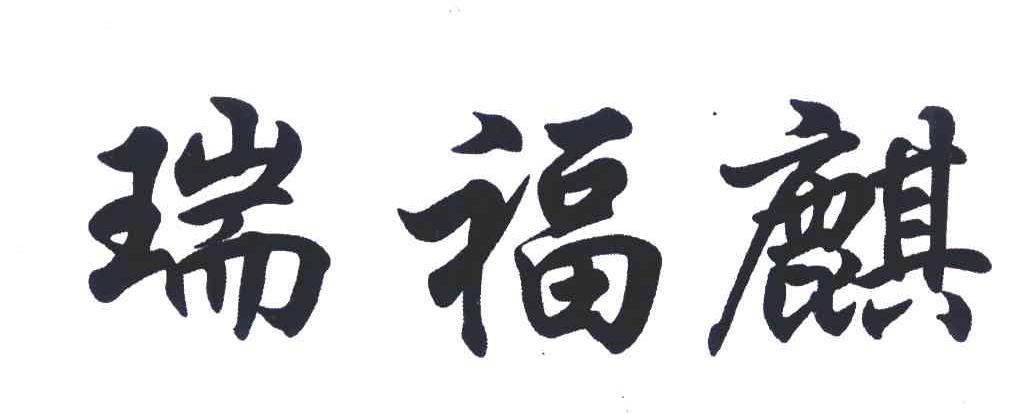 瑞福麒